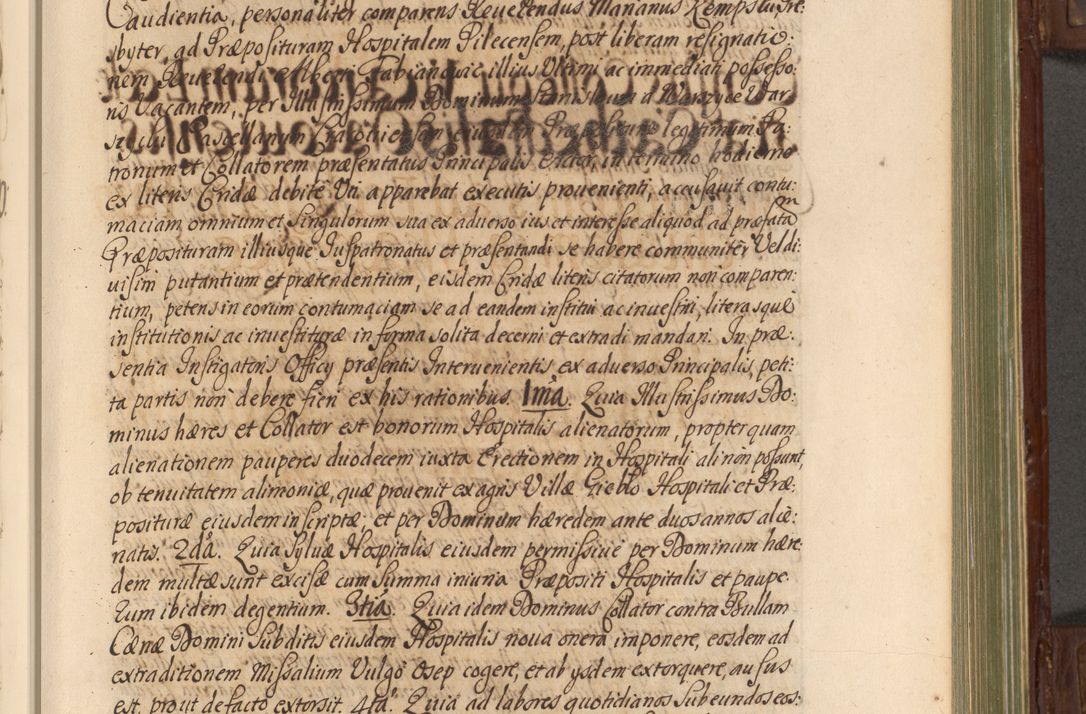 Caudientia, personaliter comparens Reverendus Marianus Kempski, Pre:
sbyter, ad Præposituram Hospitalem Pilecensem, post liberam resignatio:
nem Reverendi Alberti Fabianowic illius Ultimi ac immediati possesso:
ris Vacantem, per Illustrissimum Dominum Stanislaum à Warzyce War
szycki Castellanum Cracoviensem eiusdem Præposituræ legitimum Pa:
tronum et Collatorem præsentatus Principalis Actor, in termino hodierno
ex literis Cridæ debitè Uti apparebat executis provenienti, accusavit contu:
maciam omnium et Singulorum sua ex adverso ius et interesse aliquod ad præfatam
Præposituram illiusque Iuspatronatus et præsentandi se habere communiter Vel di:
visim putantium et prætendentium, eisdem Cridæ literis citatorum non comparen:
tium, petens in eorum contumaciam se ad eandem institui ac investiri, literasque
institutionis ac investituræ in forma solita decerni et extradi mandari. In præ:
sentia Instigatoris Officij præsentis Intervenientis ex adverso Principalis, peti:
ta partis non debere fieri ex his rationibus. 1mà. Quia Illustrissimus Do:
minus hæres et Collator est bonorum Hospitalis alienatorum, propter quam
alienationem pauperes duodecem iuxta Erectionem in Hospitali ali non possunt,
ob tenuitatem alimoniæ, quæ provenit ex agris Villæ Giebło Hospitali et Præ:
posituræ eiusdem inscriptæ, et per Dominum hæredem ante duos annos alie:
natis. 2dà. Quia Sylvæ Hospitalis eiusdem permissivè per Dominum hære:
dem multæ sunt excisæ cum summa iniuria Præpositi Hospitalis et paupe:
rum ibidem degentium. 3tià. Quia idem Dominus Collator contra Bullam
Cænæ Domini Subditis eiusdem Hospitalis nova onera imponere, eosdem ad
extraditionem Missalium Vulgò Osep cogere, et ab ysdem extorquere, ausus
est, prout de facto extorsit. 4tà. Quia ad labores quotidianos subeundos eos: